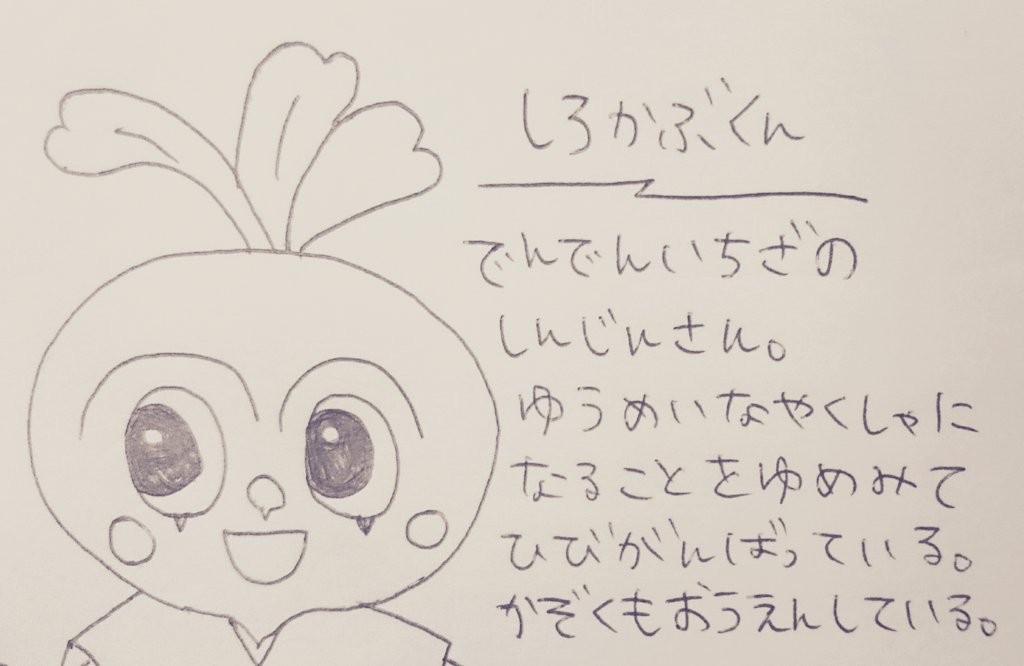 しろかぶくん
でんでんいちざの
しんじんさん。
ゆうめいなやくしゃに
なることをゆめみて
ひびがんばっている。
かぞくもおうえんしている。